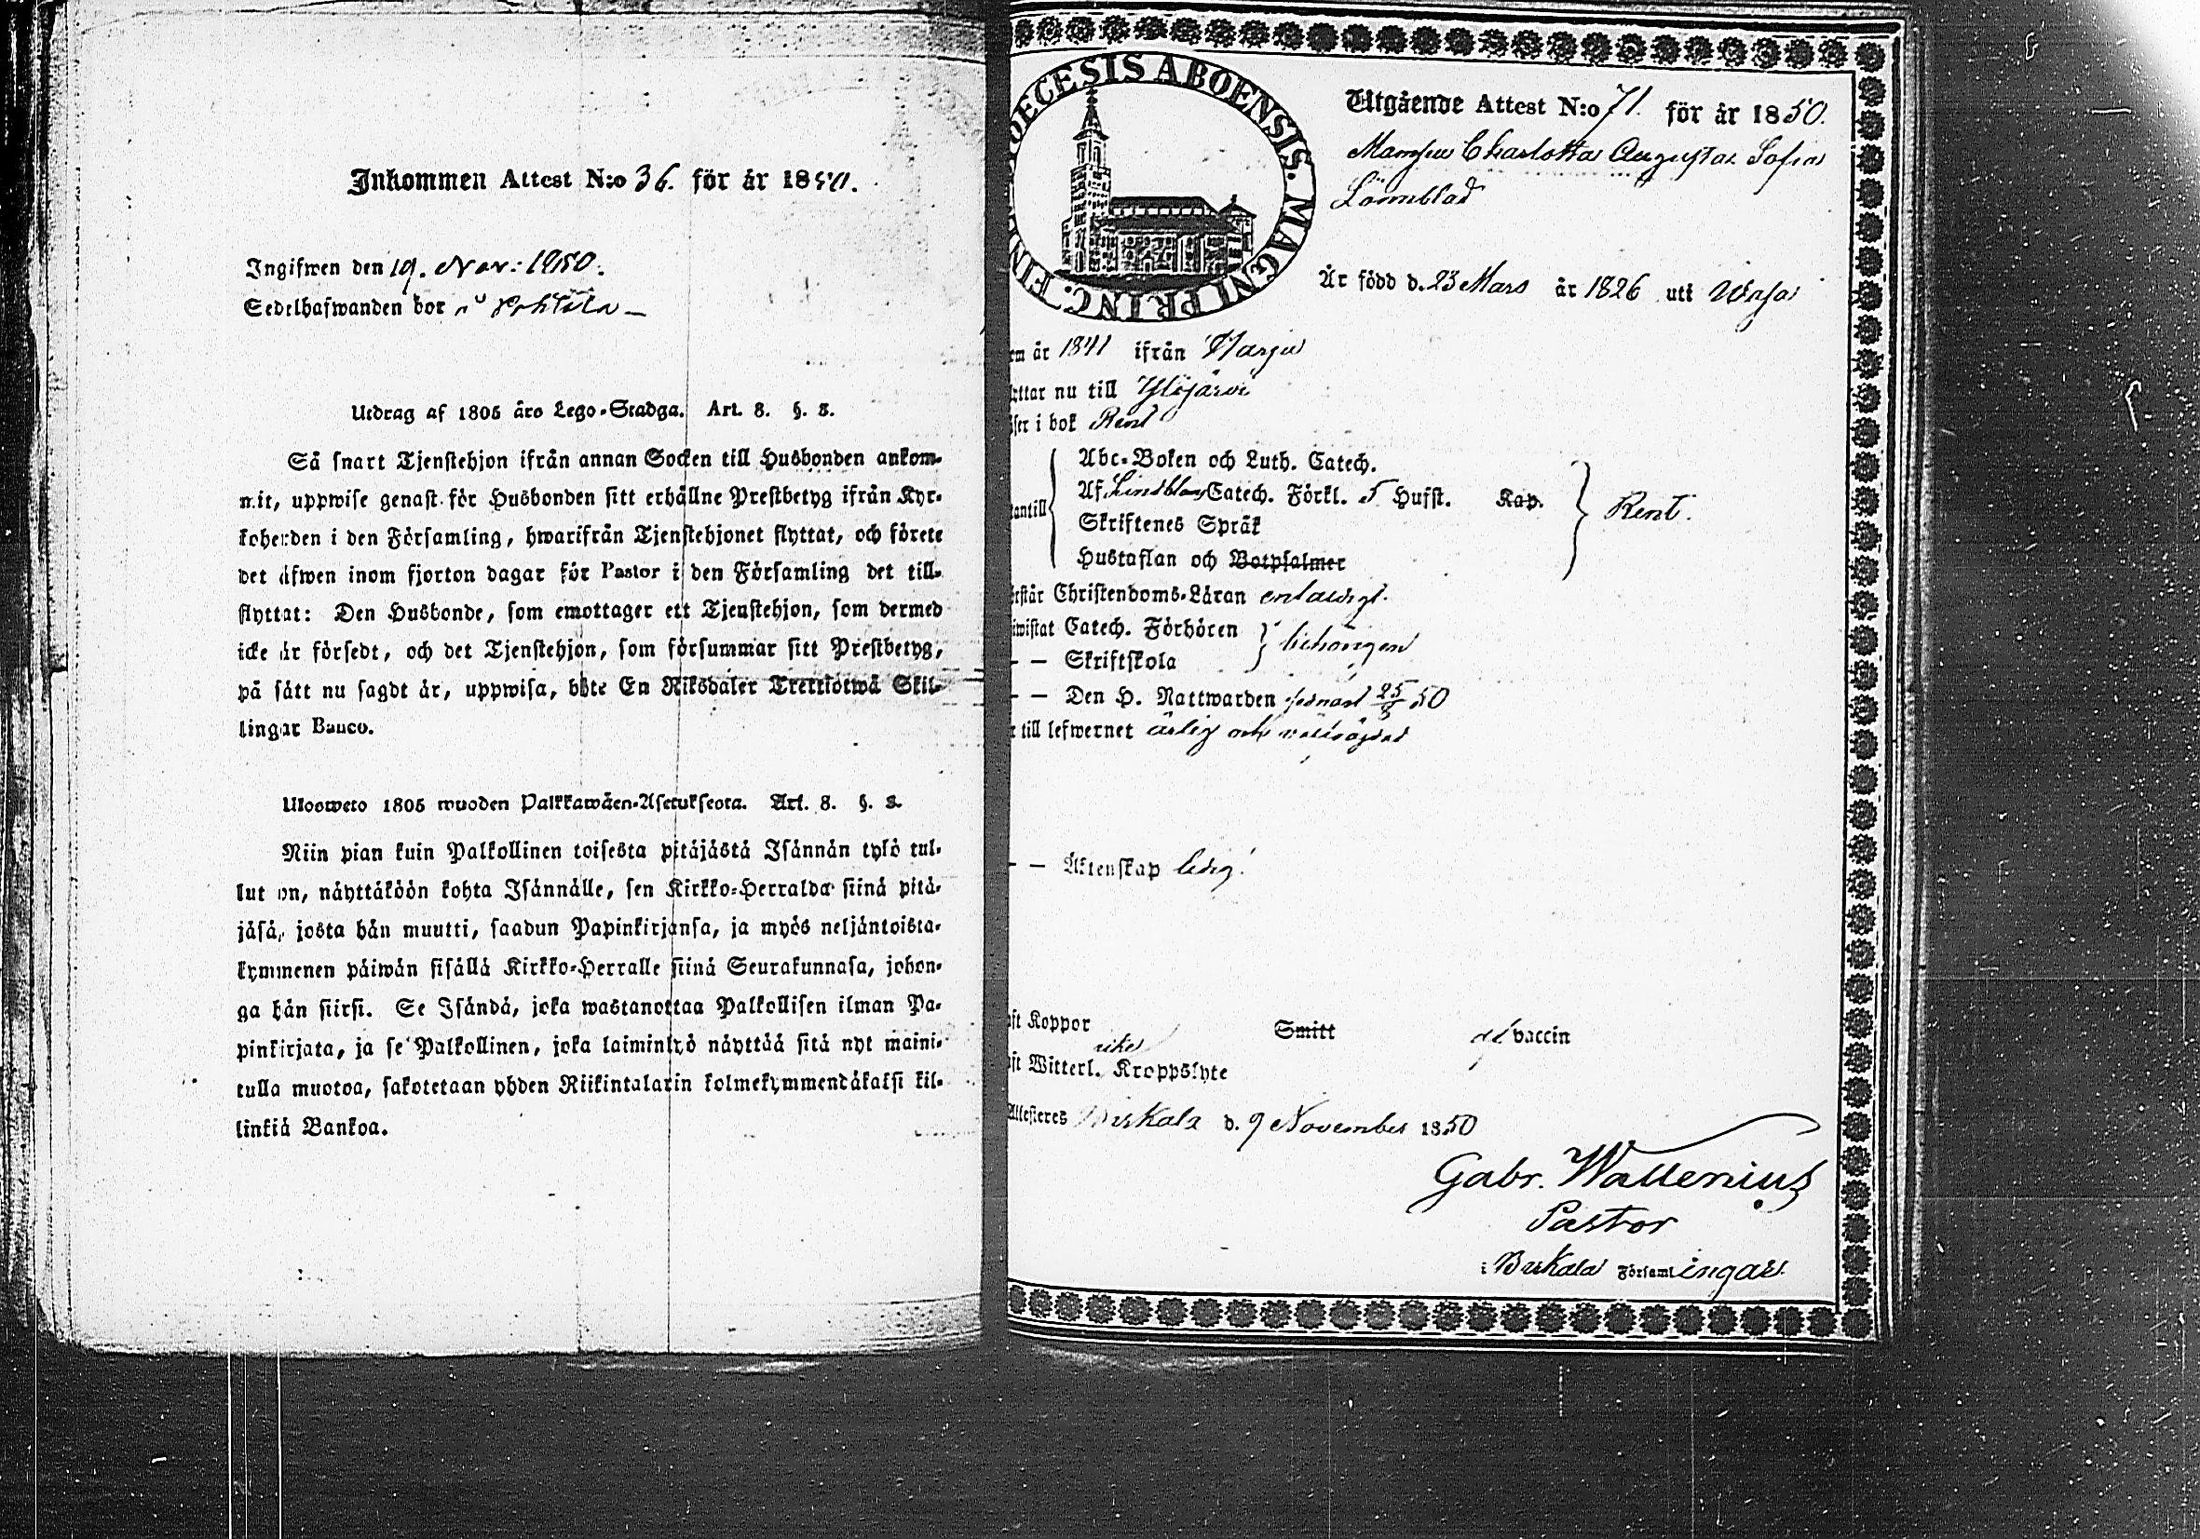 Inkommen Attest N:o 36. för år 1850.
Ingifwen den 19. Nov: 1850.
Sedelhafwanden bor
Utdrag af 1805 års Lego-Stadga. Art. 8. §. 8.
Så snart Tjenstehjon ifrån annan Socken till Husbonden ankom-
mit, uppwise genast för Husbonden sitt erhållne Prestbetyg ifrån Kyr-
koherden i den Församling, hwarifrån Tjenstehjonet flyttat, och förete
det äfwen inom fjorton dagar för Pastor i den Församling det till-
flyttat: Den Husbonde, som emottager ett Tjenstehjon, som dermed
icke är försedt, och det Tjenstehjon, som försummar sitt Prestbetyg,
på sätt nu sagdt är, uppwisa, böte En Riksdaler Trettiotwå Skil-
lingar Banco.
Ulosweto 1805 wuoden Palkkawäen-Asetuksesta. Art. 8. §. 8.
Niin pian kuin Palkollinen toisesta pitäjästä Isännän tylö tul-
lut on, näyttäköön kohta Isännälle, sen Kirkko-Herralda siinä pitä-
jäsä, josta hän muutti, saadun Papinkirjansa, ja myös neljäntoista-
kymmenen päiwän sisällä Kirkko-Herralle siinä Seurakunnasa, johon-
ga hän siirsi. Se Isändä, joka wastanottaa Palkollisen ilman Pa-
pinkirjata, ja se Palkollinen, joka laiminlyö näyttää sitä nyt maini-
tulla muotoa, sakotetaan yhden Riikintalarin kolmekymmendäkaksi kil-
linkiä Bankoa.
DECESIS ABOENSIS. MAGNI PRINC. FIN
Utgående Attest N:o 71. för år 1850.
Mamsen Charlotta Augusta Sofia
Lönnblad
Är född d. 23 Mars år 1826 uti Wasa
em år 1841 ifrån Harju
yttar nu till Ylöjärvi
äser i bok Rent
Abc-Boken och Luth. Catech.
Af Lindbloms Catech. Förkl. 5 Hufst. Kap.
antill Rent.
Skriftenes Språk
Hustaflan och Botpsalmer
rstår Christendoms-Läran enfaldigt.
iwistat Catech. Förhören behörigen
- - Skriftskola
- - Den H. Nattwarden senast 25/8 50
r till lefwernet ärlig och
- - Äktenskap ledig.
ft Koppor Smitt vaccin
ft Witterl. Kroppslyte
Attesteres Birkala d. 9 November 1850
Gabr. Wallenius
Pastor
i Birkala Församlingar.